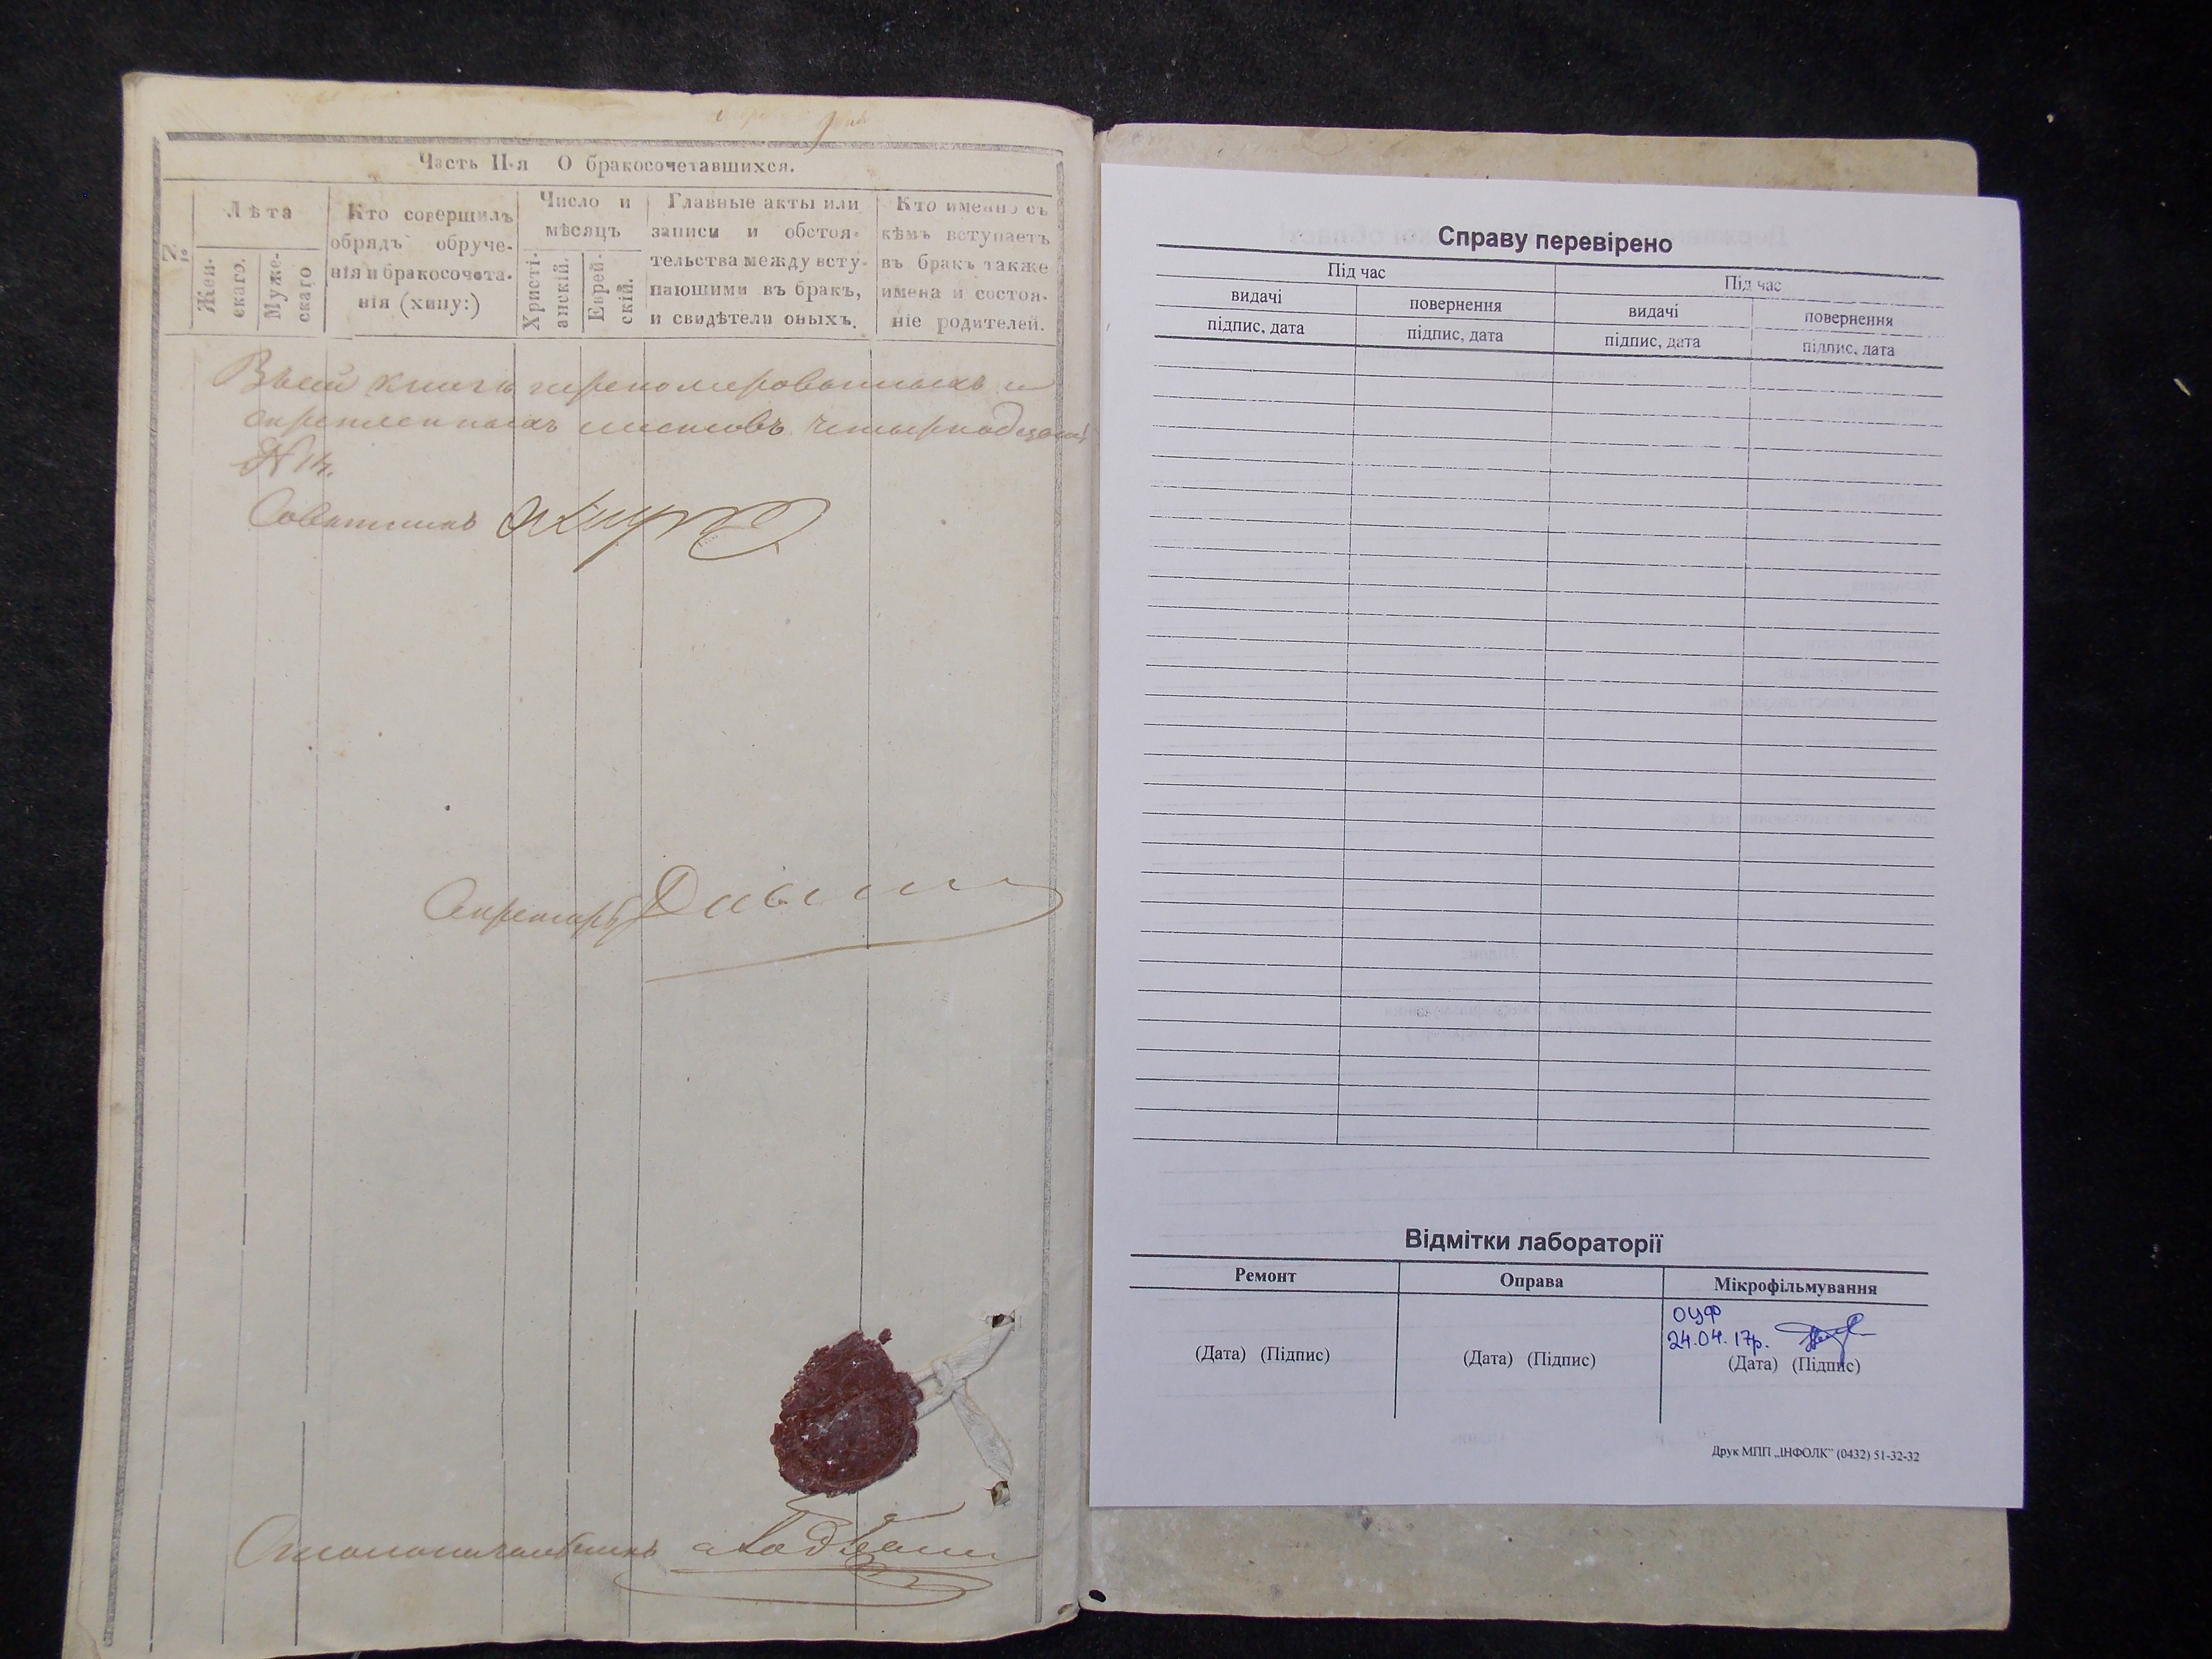 Часть II-я О бракосочетавшихся.
№
Лѣта
Жен-
скаго.
Муже-
скаго
Кто совершилъ
обрядъ обруче-
нія и бракосочета-
нія (хипу:)
Число и
мѣсяцъ
Христі-
анскій.
Еврей-
скій.
Главные акты или
записи и обстоя-
тельства между всту-
пающими въ бракъ,
и свидѣтели оныхъ.
Кто именно съ
кѣмъ вступаетъ
въ бракъ также
имена и состоя-
ніе родителей.
Въ сей книгѣ перенумерованныхъ и
скрепленныхъ листовъ четырнадцать
№ 14.
Советникъ
Секретарь
Столоначальникъ
Справу перевірено
Під час
Під час
видачі
повернення
видачі
повернення
підпис, дата
підпис, дата
підпис, дата
підпис, дата
Відмітки лабораторії
Ремонт
Оправа
Мікрофільмування
ОЦФ
24.04.17р.
(Дата) (Підпис)
(Дата) (Підпис)
(Дата) (Підпис)
Друк МПП „ІНФОЛК” (0432) 51-32-32